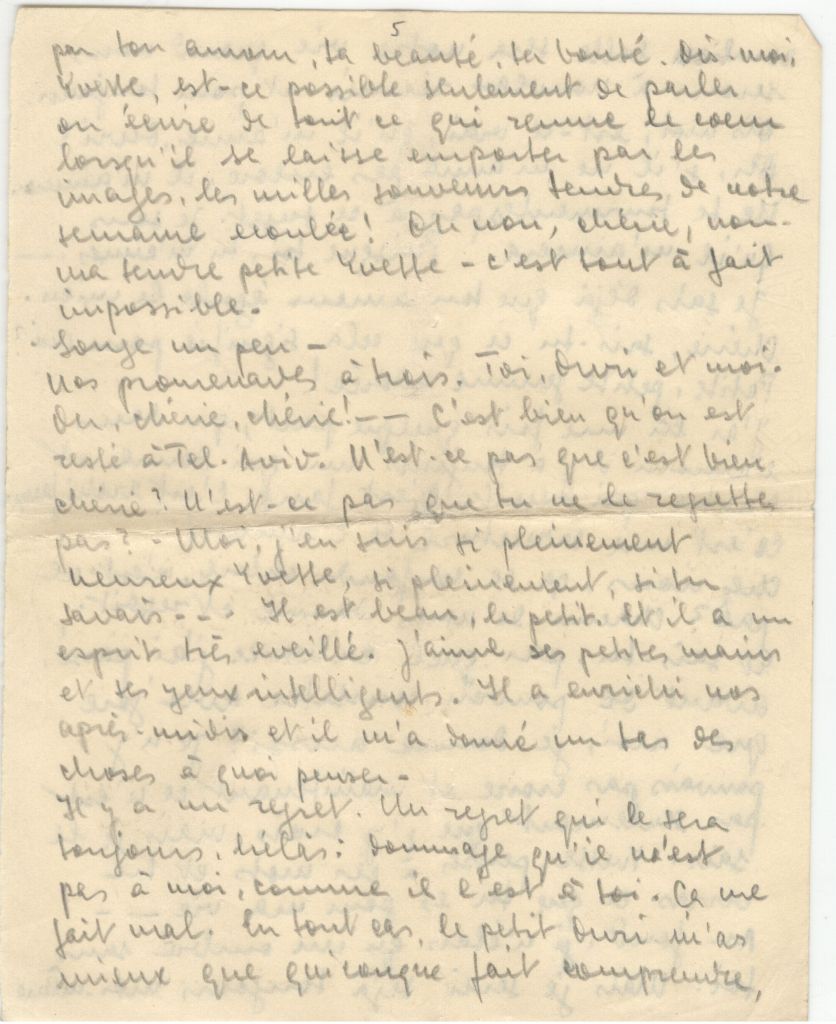 5
par ton amour, ta beauté, ta bonté. Dis-moi,
Yvette, est-ce possible seulement de parler
ou écrire de tout ce qui remue le coeur
lorsqu'il se laisse emporter par les
images, les milles souvenirs tendres de notre
semaine ecoulée! Oh non, chérie, non-
ma tendre petite Yvette - c'est tout à fait
impossible.
Songe un peu -
nos promenades à trois. Toi, Ouri et moi.
Oh, chérie, chérie! -- C'est bien qu'on est
resté à Tel-Aviv. N'est-ce pas que c'est bien
chérie? N'est-ce pas que tu ne le regrettes
pas? - Moi, j'en suis si pleinement
heureux Yvette, si pleinement, si tu
savais--- Il est beau, le petit. Et il a un
esprit très eveillé. J'aime ses petites mains
et ses yeux intelligents. Il a enrichi nos
après-midis et il m'a donné un tas des
choses à quoi penser -
Il y a un regret. Un regret qui le sera
toujours, helas: dommage qu'il n'est
pas à moi, comme il l'est à toi. Ça me
fait mal. En tout cas, le petit Ouri m'as
mieux que quiconque fait comprendre,